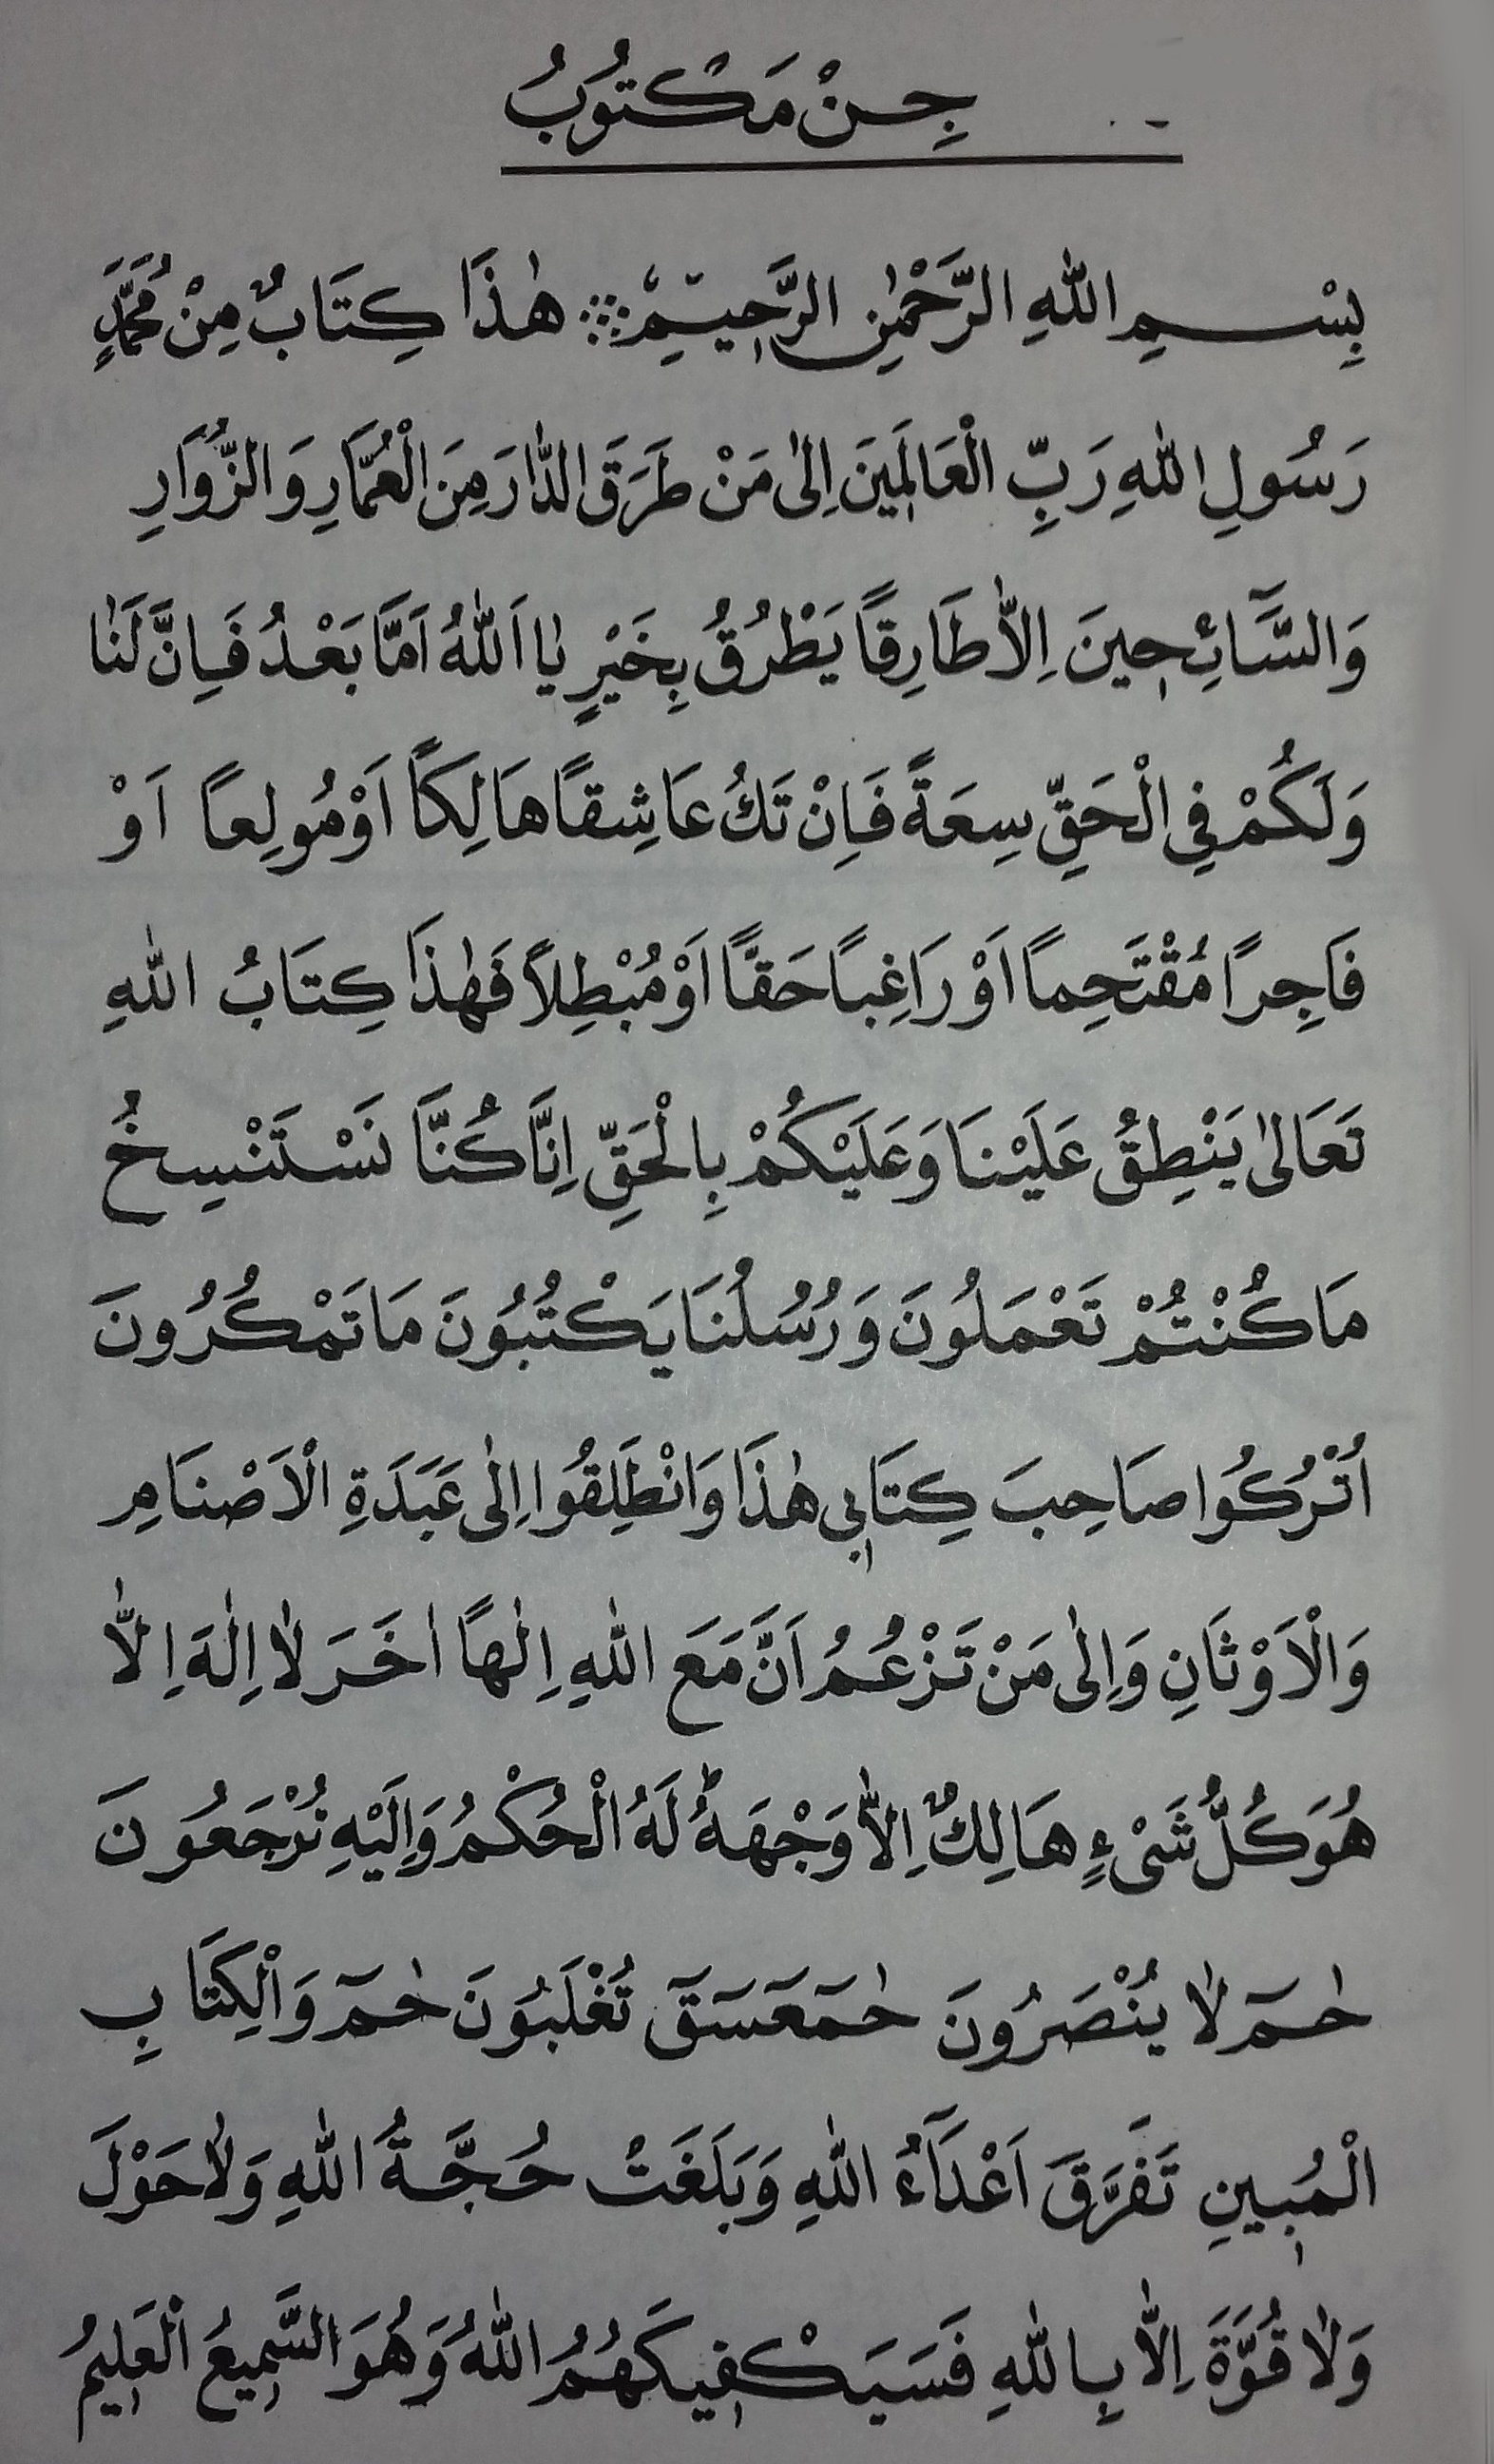 جِنْ مَكْتُوبُ
بِسْمِ اللّٰهِ الرَّحْمٰنِ الرَّحِيمِ هٰذَا كِتَابٌ مِنْ مُحَمَّدٍ
رَسُولِ اللّٰهِ رَبِّ الْعَالَمِينَ اِلٰى مَنْ طَرَقَ الدَّارَ مِنَ الْعُمَّارِ وَالزُّوَّارِ
وَالسَّٓائِحِينَ اِلَّا طَارِقًا يَطْرُقُ بِخَيْرٍ يَا اَللّٰهُ اَمَّا بَعْدُ فَاِنَّ لَنَا
وَلَكُمْ فِي الْحَقِّ سِعَةً فَاِنْ تَكُ عَاشِقًا هَالِكًا اَوْ مُولِعًا اَوْ
فَاجِرًا مُقْتَحِمًا اَوْ رَاغِبًا حَقًّا اَوْ مُبْطِلًا فَهٰذَا كِتَابُ اللّٰهِ
تَعَالٰى يَنْطِقُ عَلَيْنَا وَعَلَيْكُمْ بِالْحَقِّ اِنَّا كُنَّا نَسْتَنْسِخُ
مَا كُنْتُمْ تَعْمَلُونَ وَرُسُلُنَا يَكْتُبُونَ مَا تَمْكُرُونَ
اُتْرُكُوا صَاحِبَ كِتَابِي هٰذَا وَانْطَلِقُوا اِلٰى عَبَدَةِ الْاَصْنَامِ
وَالْاَوْثَانِ وَاِلٰى مَنْ تَزْعُمُ اَنَّ مَعَ اللّٰهِ اِلٰهًا اٰخَرَ لَا اِلٰهَ اِلَّا
هُوَ كُلُّ شَيْءٍ هَالِكٌ اِلَّا وَجْهَهُ لَهُ الْحُكْمُ وَاِلَيْهِ تُرْجَعُونَ
حٰمٓ لَا يُنْصَرُونَ حٰمٓعٓسٓقٓ تُغْلَبُونَ حٰمٓ وَالْكِتَابِ
الْمُبِينِ تَفَرَّقَ اَعْدَٓاءُ اللّٰهِ وَبَلَغَتْ حُجَّةُ اللّٰهِ وَلَا حَوْلَ
وَلَا قُوَّةَ اِلَّا بِاللّٰهِ فَسَيَكْفِيكَهُمُ اللّٰهُ وَهُوَ السَّمِيعُ الْعَلِيمُ